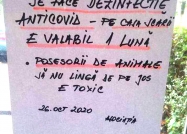 SE FACE DEZINFECȚIE
ANTICOVID - PE CASA SCĂRII
E VALABIL 1 LUNĂ
• POSESORII DE ANIMALE
SĂ NU LINGĂ SE PE JOS
E TOXIC
26.OCT 2020
ASOCIAȚIA